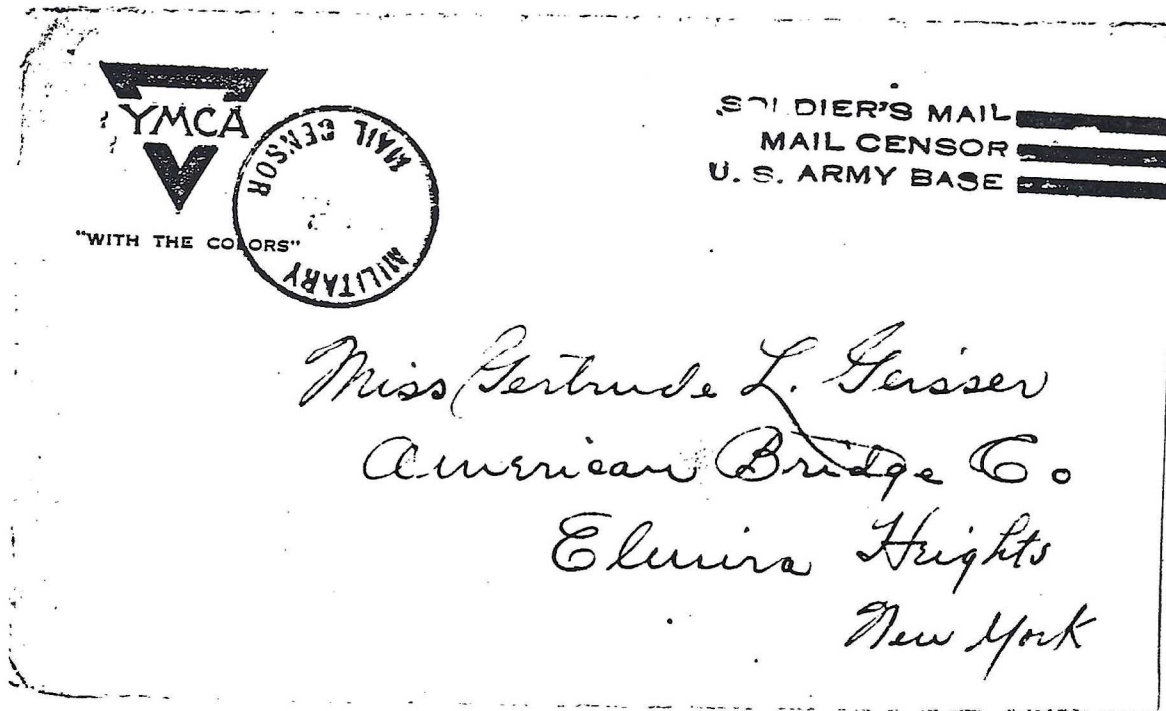 YMCA
"WITH THE COLORS"
MAIL CENSOR
MILITARY
SOLDIER'S MAIL
MAIL CENSOR
U. S. ARMY BASE
Miss Gertrude L. Geisser
American Bridge Co
Elmira Heights
New York